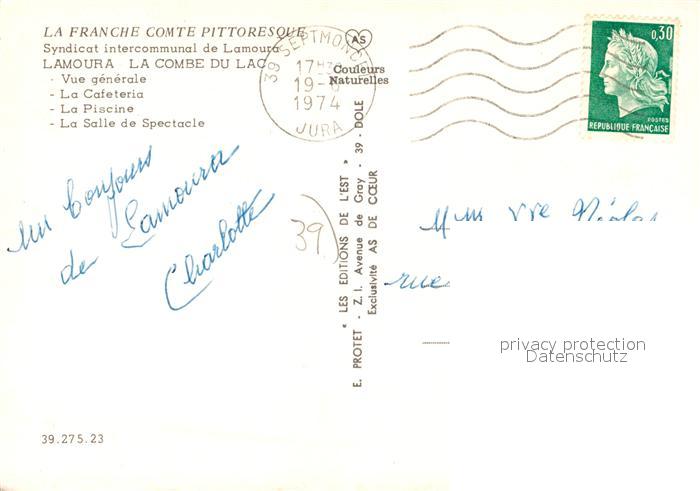 LA FRANCHE COMTE PITTORESQUE
Syndicat intercommunal de Lamoura
LAMOURA LA COMBE DU LAC
- Vue générale
- La Cafeteria
- La Piscine
- La Salle de Spectacle
39 SEPTMONCEL
17H30
19-8
1974
JURA
AS
Couleurs
Naturelles
0,30
POSTES
REPUBLIQUE FRANÇAISE
un bonjour
de Lamoura
Charlotte
39
E. PROTET - " LES EDITIONS DE L'EST "
Z. I. Avenue de Gray - 39 - DOLE
Exclusivité AS DE CŒUR
Mme vve Nicolas
rue
privacy protection
Datenschutz
39.275.23